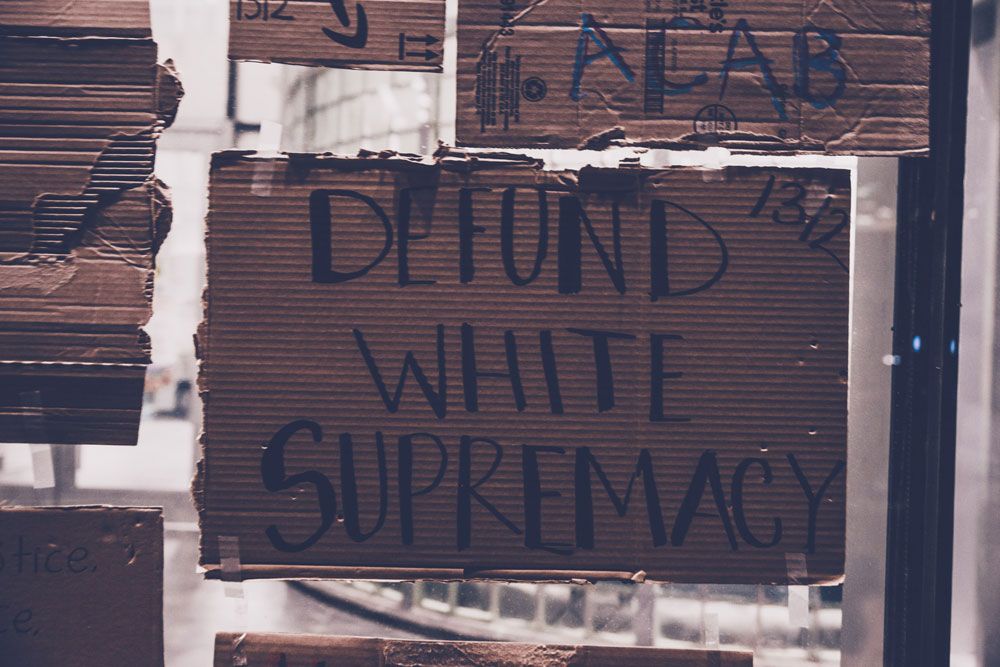 1312
ACAB
1312
DEFUND
WHITE
SUPREMACY
stice,
ce,